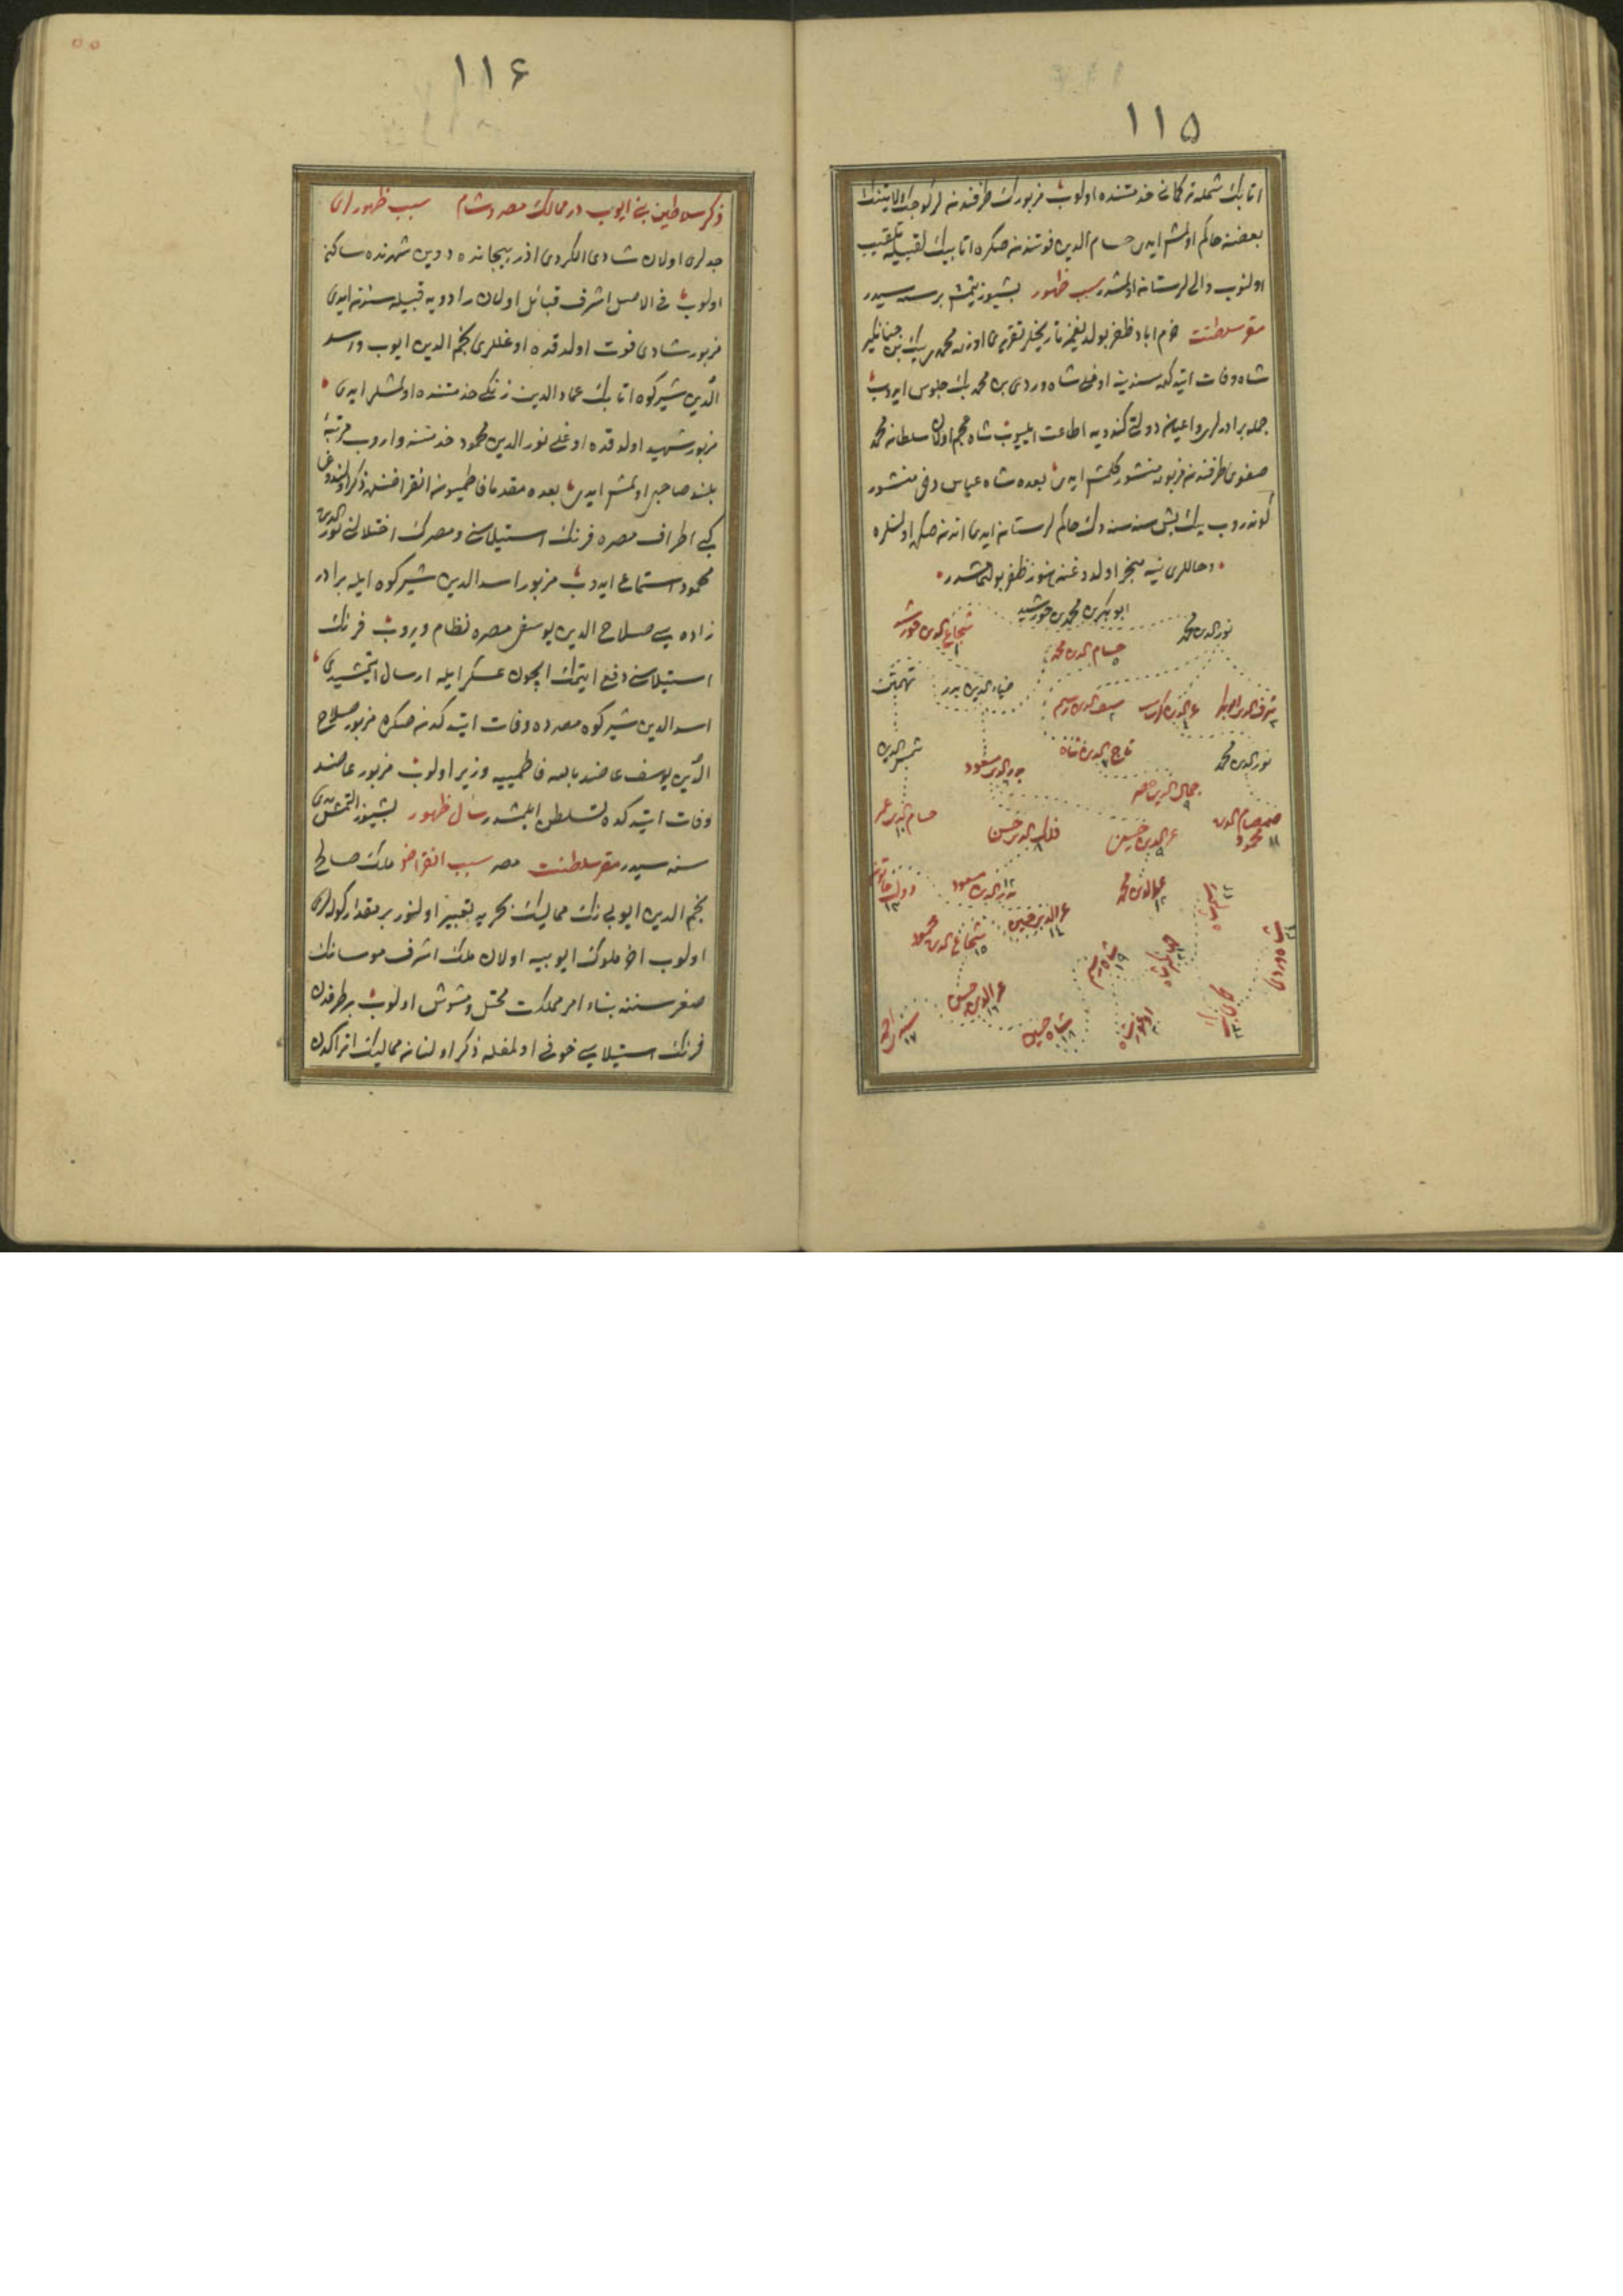 ١١٥
اتابك شمله تركمانى خدمتنده اولوب مزبورك طرفندن لر كوچك ولايتنك
بعضنه حاكم اولمش ايدى حسام الدين فوتندنصكره اتابيك لقبيله تلقيب
اولنوب والى لرستان اولمشدر سبب ظهور بشيوز يتمش بر سنه سيدر
مقر سلطنت خرم اباد ظفر بولديغمز تاريخلر تقريرى اوزره محمدى بيك بن جهانكير
شاه وفات ايتدكده سنديه اوغلى شاه وردى بن محمدى بك جلوس ايدوب
جمله برادرلرى واعيان دولتى كندويه اطاعت ايليوب شاه عجم اولان سلطان محمد
صفوى طرفندن مزبوره منشور كلمش ايدى بعده شاه عباس دخى منشور
كوندروب بيك بش سنه سنه دك حاكم لرستان ايدى اندن صكره اولنلره
وحاللرى نيه منجر اولدوغنه هنوز ظفر بولنمامشدر
ابو بكر بن محمد بن خورشيد
نور الدين محمد
شجاع الدين خورشيد ١
حسام الدين محمد
شرف الدين ابوبكر ٣
عز الدين كرشاسب
سيف الدين رستم ٢
ضياء الدين بدر
تهمتن
نور الدين محمد
تاج الدين شاه
بدر الدين مسعود
شمس الدين
جمال الدين خضر ٩
صمصام الدين محمود ١١
عز الدين حسين
فلك الدين حسن ٨
حسام الدين عمر ١٠
عز الدين محمد ١٢
بدر الدين مسعود
دولت خاتون ١٣
عز الدين حسين ١٤
شجاع الدين محمود ١٥
شاه رستم ١٩
جهانكير شاه
شاه وردى
عز الدين حسين ١٦
شاه حسين ١٨
سيدى احمد ١٧
محمدى بك
١١٦
ذكر سلاطين بنى ايوب در ممالك مصر وشام سبب ظهورلرى
جدلرى اولان شادى الكردى اذربيجانده دوين شهرنده ساكن
اولوب فى الاصل اشرف قبائل اولان رادويه قبيله سندن ايدى
مزبور شادى فوت اولدقده اوغللرى نجم الدين ايوب واسد
الدين شيركوه اتابك عماد الدين زنكى خدمتنده اولمشلر ايدى
مزبور شهيد اولدقده اوغلى نور الدين محمود خدمتنه واروب مرتبه
بلند صاحبى اولمش ايدى بعده مقدما فاطميون انقراضنده ذكر اولندوغى
كبى اطراف مصره فرنك استيلاسنى ومصرك اختلالنى نور الدين
محمود استماع ايدوب مزبور اسد الدين شيركوه ايله برادر
زاده سى صلاح الدين يوسفى مصره نظام ويروب فرنك
استيلاسنى دفع ايتمك ايچون عسكر ايله ارسال ايتمشيدى
اسد الدين شيركوه مصرده وفات ايتدكدن صكره مزبور صلاح
الدين يوسف عاضد بالله فاطمييه وزير اولوب مزبور عاضد
وفات ايتدكده تسلطن ايلمشدر سال ظهور بشيوز التمش يدى
سنه سيدر مقر سلطنت مصر سبب انقراض ملك صالح
نجم الدين ايوبى نك مماليك بحريه تعبير اولنور بر مقدار كوله لرى
اولوب اخر ملوك ايوبيه اولان ملك اشرف موسانك
صغر سننه بناء امر مملكت مختل ومشوش اولوب بر طرفدن
فرنك استيلاسى خوفى اولمغله ذكر اولنان مماليك اتراكدن